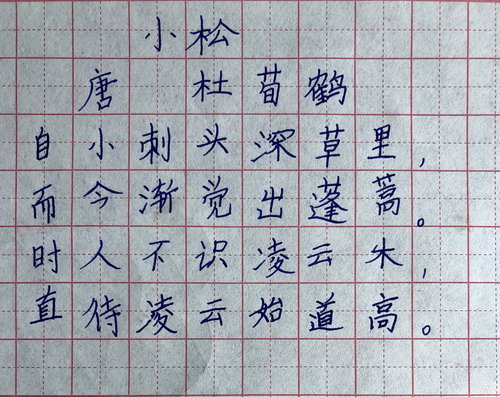 小松
唐 杜荀鹤
自小刺头深草里，
而今渐觉出蓬蒿。
时人不识凌云木，
直待凌云始道高。